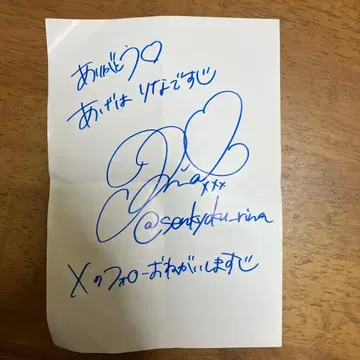 ありがとう♡
あげは りなです
Rina♡
xxx
@senkyoku_rina
Xのフォローおねがいします